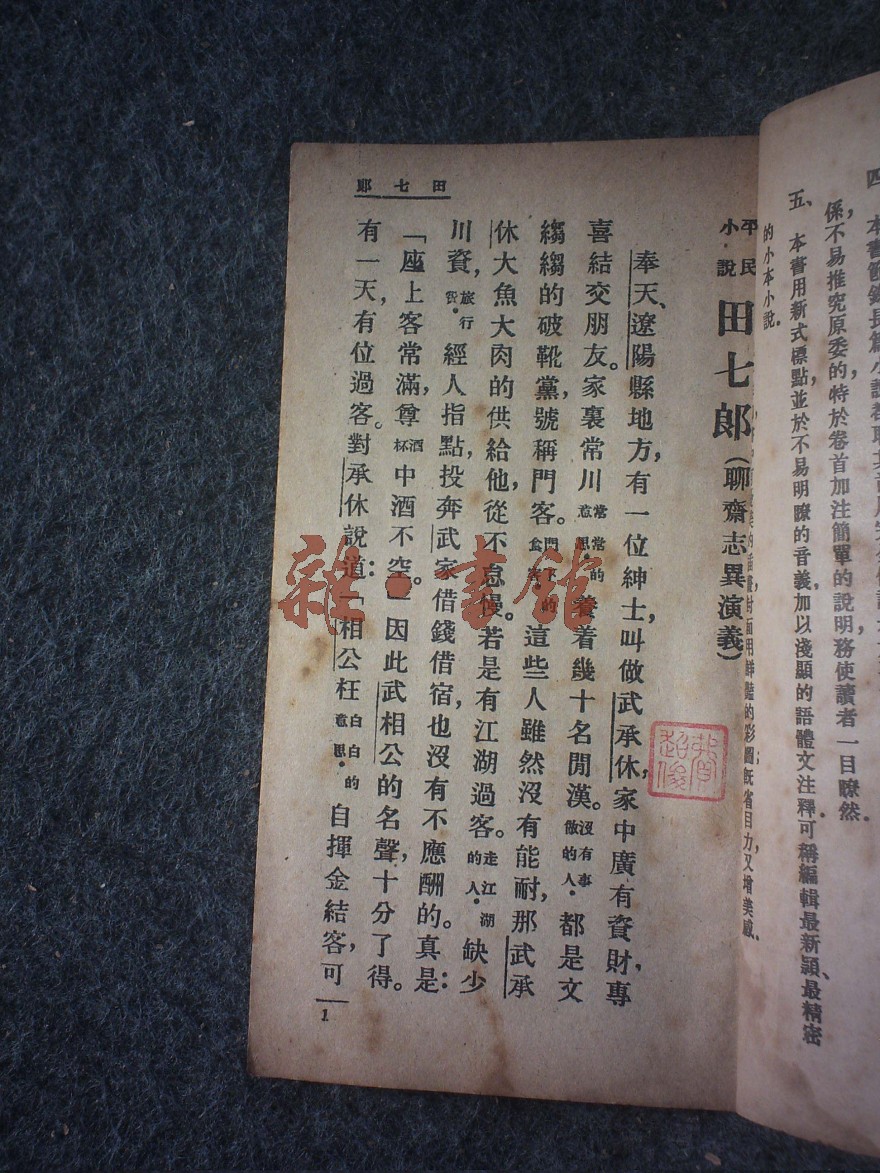 四
係，不易推究原委的，特於卷首加注簡單的說明，務使讀者一目瞭然．
五、本書用新式標點，並於不易明瞭的音義，加以淺顯的語體文注釋，可稱編輯最新穎、最精密
的小本小說．
封面用鮮豔的彩圖，旣省目力，又增美感．
田七郎
平民小說 田七郎（聊齋志異演義）
奉天、遼陽縣地方，有一位紳士，叫做武承休，家中廣有資財，專
喜結交朋友。家裏常川常常的意思．養着幾十名閒漢。沒有事做的人．都是文
縐縐的破靴黨，號稱門客。這些人雖然沒有能耐，那武承
休大魚大肉的供給他，從不怠慢。若是有江湖過客。走江湖的人．缺少
川資，旅行經人指點，投奔武家借錢借宿，也沒有不應酬的。真是：
「座上客常滿，尊酒杯中酒不空。」因此武相公的名聲，十分了得。
有一天，有位過客。對承休說道：「相公枉白白的意思．自揮金結客，可
1
雜·書館